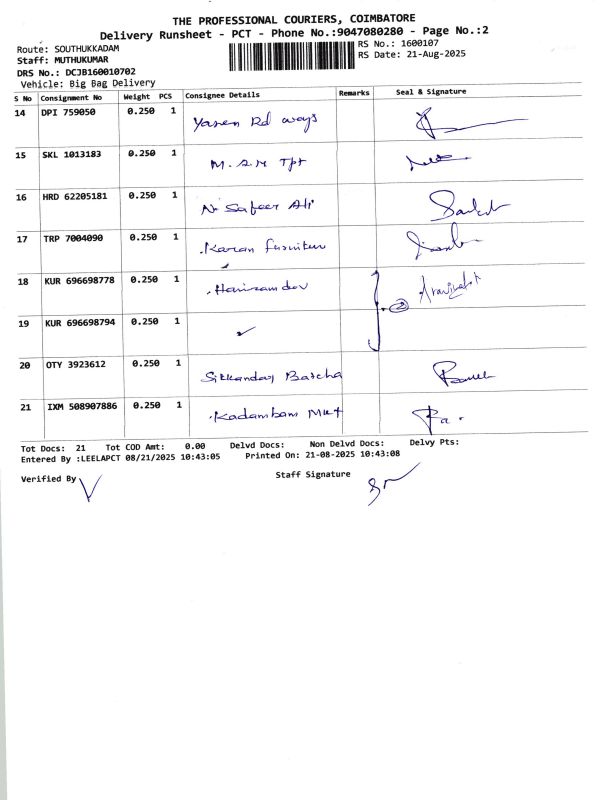 THE PROFESSIONAL COURIERS, COIMBATORE
Delivery Runsheet - PCT - Phone No.:9047080280 - Page No.:2
Route: SOUTHUKKADAM
RS No.: 1600107
Staff: MUTHUKUMAR
RS Date: 21-Aug-2025
DRS No.: DCJB160010702
Vehicle: Big Bag Delivery
S No Consignment No Weight PCS Consignee Details Remarks Seal & Signature
14 DPI 759050 0.250 1 Yaseen Rd ways
15 SKL 1013183 0.250 1 M.S.M Tpt
16 HRD 62205181 0.250 1 N. Safeer Ali
17 TRP 7004090 0.250 1 Karan Furniture
18 KUR 696698778 0.250 1 Hariramdev 2
19 KUR 696698794 0.250 1
20 OTY 3923612 0.250 1 Sikkandar Batcha
21 IXM 508907886 0.250 1 Kadambam Mkt
Tot Docs: 21 Tot COD Amt: 0.00 Delvd Docs: Non Delvd Docs: Delvy Pts:
Entered By :LEELAPCT 08/21/2025 10:43:05 Printed On: 21-08-2025 10:43:08
Verified By
Staff Signature